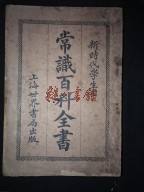 新時代學生
常識百科全書
上海世界書局出版